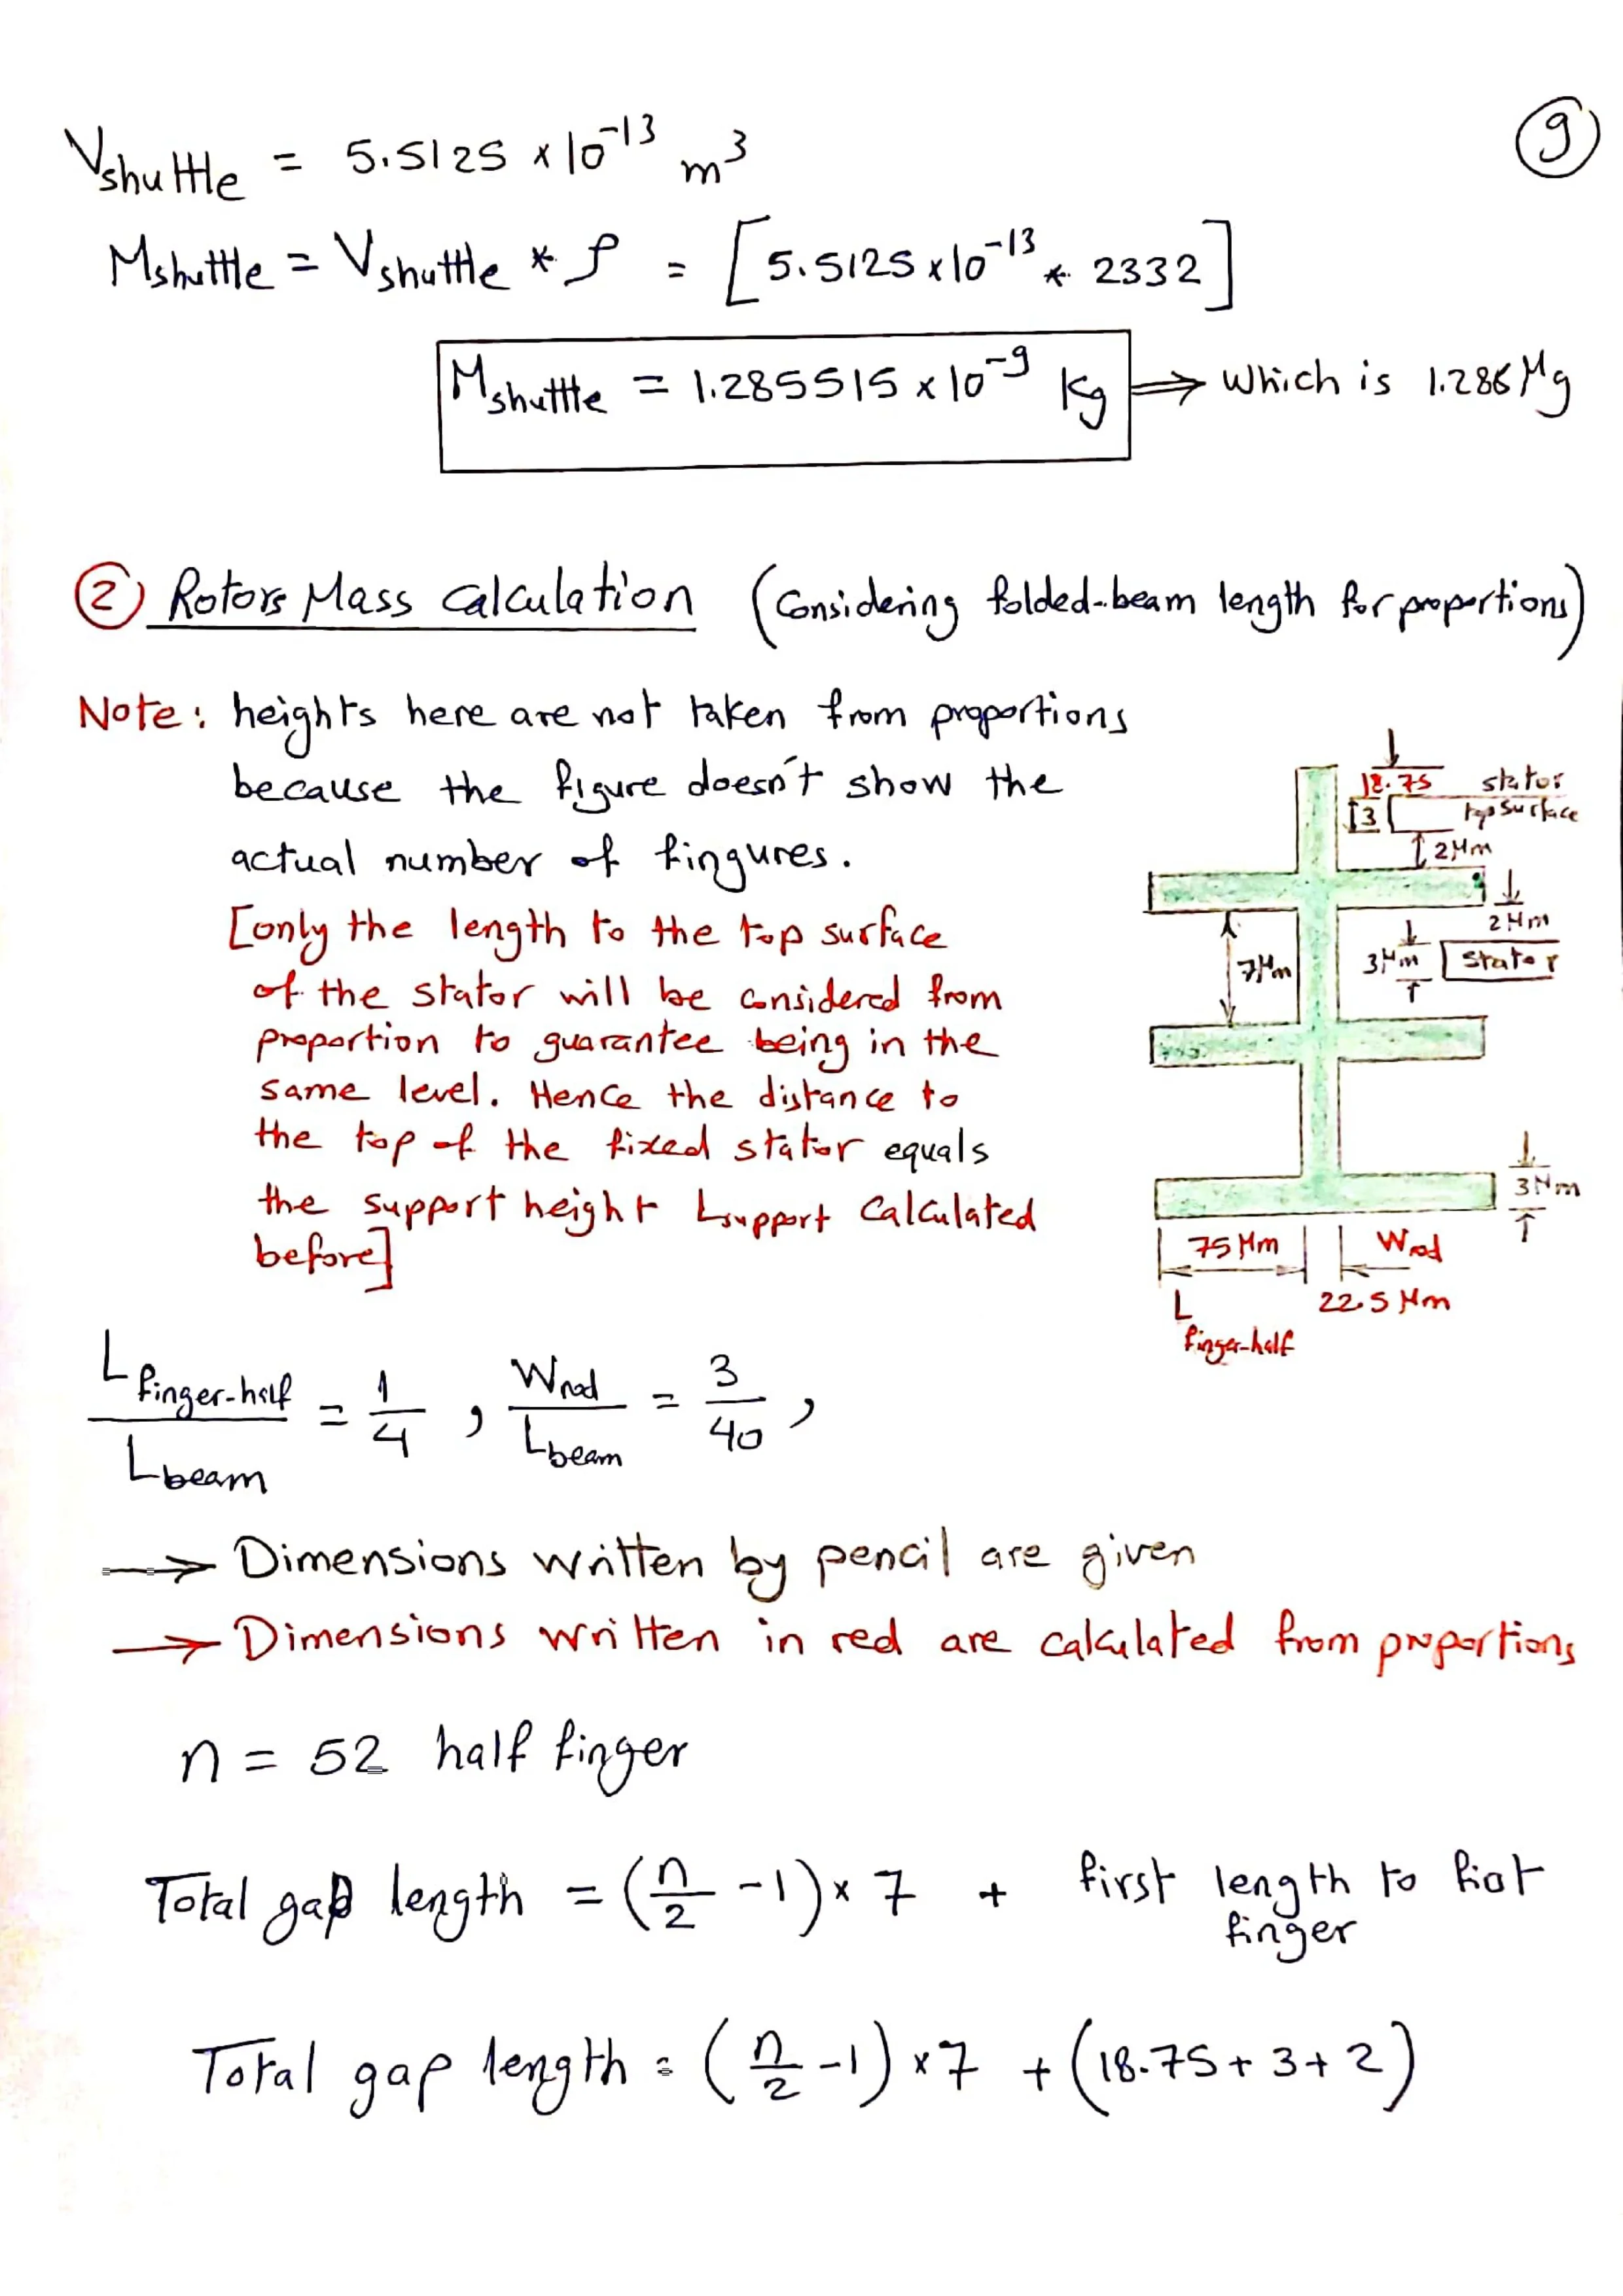 9
Vshuttle = 5.5125 x 10^-13 m^3
Mshuttle = Vshuttle * ρ = [5.5125 x 10^-13 * 2332]
Mshuttle = 1.285515 x 10^-9 Kg ⟹ which is 1.286 Mg
② Rotors Mass Calculation (Considering folded-beam length for proportions)
Note: heights here are not taken from proportions
because the figure doesn't show the
actual number of fingures.
[only the length to the top surface
of the stator will be considered from
proportion to guarantee being in the
same level. Hence the distance to
the top of the fixed stator equals
the support height Lsupport Calculated
before]
18.75 stator
3 top surface
2Mm
2Mm
7Mm 3Mm stator
3Mm
75 Mm Wrod
L finger-half 22.5 Mm
L finger-half / Lbeam = 1/4 , Wrod / Lbeam = 3/40 ,
→ Dimensions written by pencil are given
→ Dimensions written in red are calculated from proportions
n = 52 half finger
Total gap length = (n/2 - 1) x 7 + first length to fist
finger
Total gap length = (n/2 - 1) x 7 + (18.75 + 3 + 2)